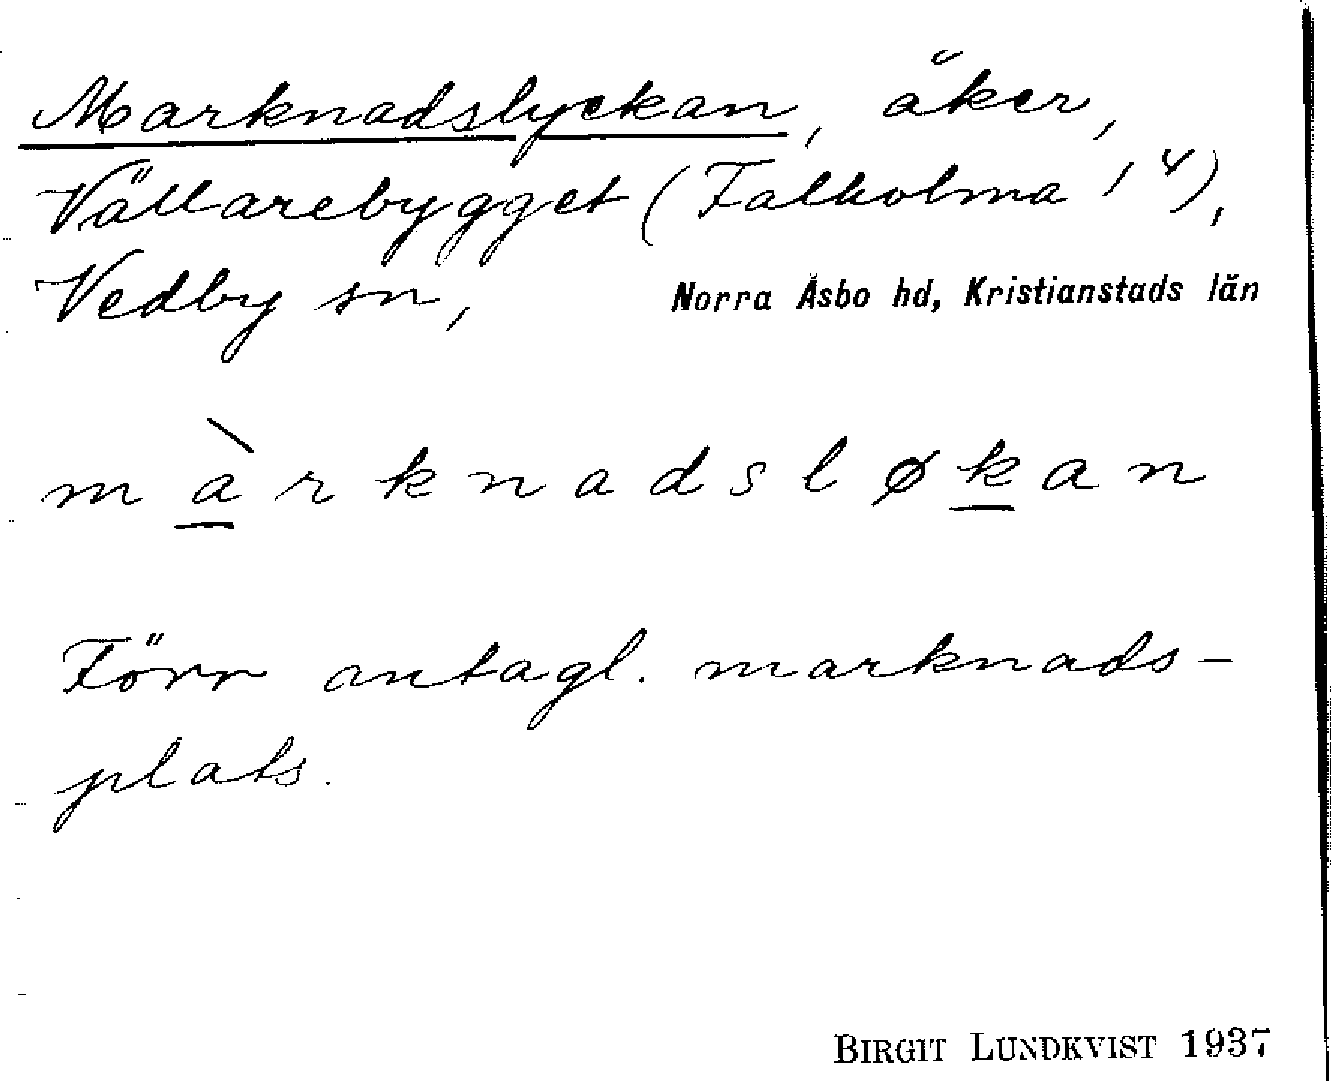 Marknadslyckan, åker,
Vällarebygget (Falholma 1⁴),
Vedby sn, Norra Åsbo hd, Kristianstads län
màrknadsløkan
Förr antagl. marknads-
plats.
BIRGIT LUNDKVIST 1937